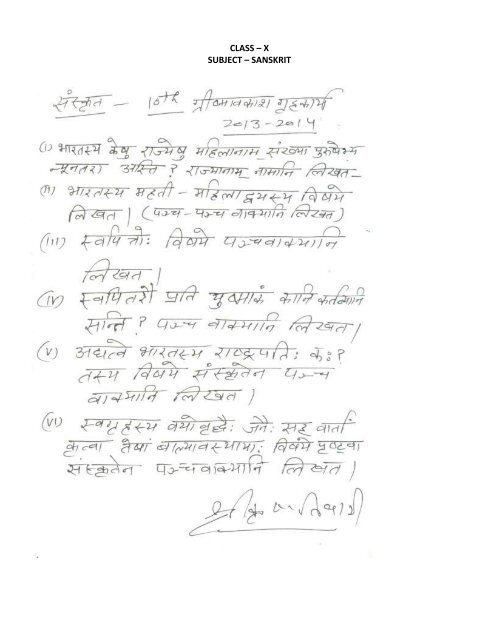 CLASS – X
SUBJECT – SANSKRIT
संस्कृत – 10th ग्रीष्मावकाश गृहकार्य
2013-2014
(i) भारतस्य केषु राज्येषु महिलानाम् संख्या पुरुषेभ्य
न्यूनतरा अस्ति ? राज्यानाम् नामानि लिखत–
(ii) भारतस्य महती – महिलाद्वयस्य विषये
लिखत । (पञ्च-पञ्च वाक्यानि लिखत)
(iii) स्वपित्रोः विषये पञ्चवाक्यानि
लिखत ।
(iv) स्वपितरौ प्रति युष्माकं कानि कर्तव्यानि
सन्ति ? पञ्च वाक्यानि लिखत ।
(v) अद्यत्वे भारतस्य राष्ट्रपतिः कः ?
तस्य विषये संस्कृतेन पञ्च
वाक्यानि लिखत ।
(vi) स्वगृहस्य वयोवृद्धैः जनैः सह वार्ता
कृत्वा तेषां बाल्यावस्थायाः विषये पृष्ट्वा
संस्कृतेन पञ्चवाक्यानि लिखत ।